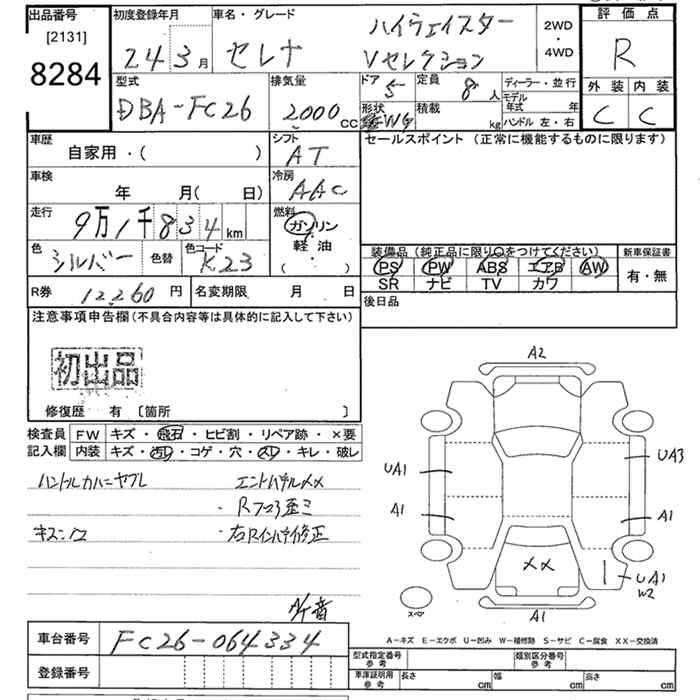 出品番号 初度登録年月 車名・グレード ハイウェイスター 2WD 評価点
[2131] 24 3月 セレナ Vセレクション ・ R
8284 4WD
型式 排気量 ドア 5 定員 8人 ディーラー・並行 外装 内装
DBA-FC26 2000cc 形状 WG 積載 kg モデル年式 年 C C
ハンドル 左・右
車歴 自家用・( ) シフト AT セールスポイント (正常に機能するものに限ります)
車検 年 月( 日) 冷房 AAC
走行 9万1千834km 燃料 ガソリン・軽油・( )
色 シルバー 色替 色コード K23
装備品 (純正品に限り○をつけてください) 新車保証書
PS PW ABS エアB AW 有・無
SR ナビ TV カワ
R券 12260円 名変期限 月 日 後日品
注意事項申告欄 (不具合内容等は具体的に記入して下さい)
初出品
修復歴 有 〔箇所 〕
検査員 FW キズ・飛石・ヒビ割・リペア跡・×要
記入欄 内装 キズ・汚れ・コゲ・穴・スレ・キレ・破レ
ハンドルカバーヤブレ エンドパネルXX
・Rフロア歪ミ
・右Rインパネ修正
A2
UA1 UA3
A1 A1
XX
UA1
W2
スペア A1
A-キズ E-エクボ U-凹み W-補修跡 S-サビ C-腐食 XX-交換済
車台番号 FC26-064334
登録番号
型式指定番号 参考 類別区分番号 参考
車庫証明用 参考 長さ cm 幅 cm 高さ cm